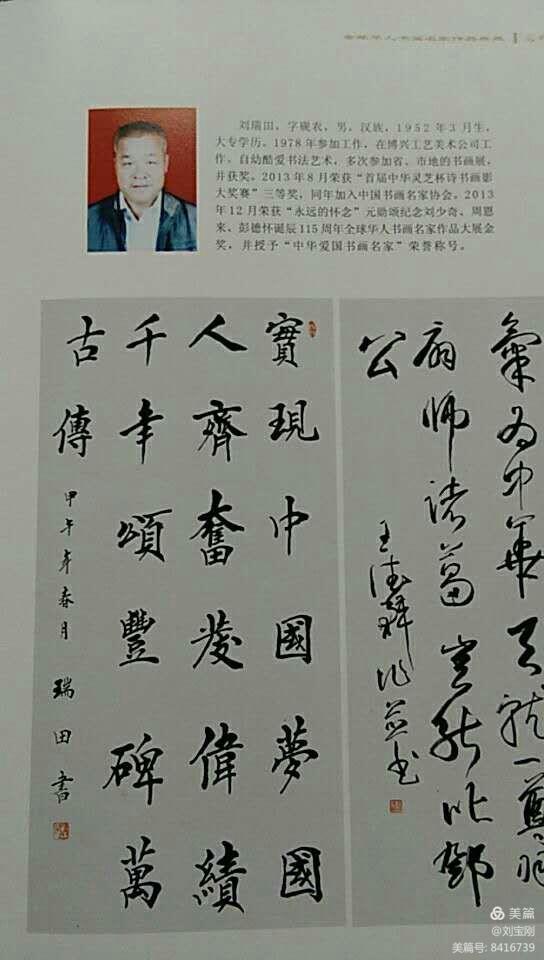 刘瑞田，字砚农，男，汉族，1952年3月生，
大专学历。1978年参加工作，在博兴工艺美术公司工
作。自幼酷爱书法艺术，多次参加省、市地的书画展，
并获奖。2013年8月荣获“首届中华灵芝杯诗书画影
大奖赛”三等奖，同年加入中国书画名家协会。2013
年12月荣获“永远的怀念”元勋颂纪念刘少奇、周恩
来、彭德怀诞辰115周年全球华人书画名家作品大展金
奖，并授予“中华爱国书画名家”荣誉称号。
氣为中華
師诸葛
公
實現中國夢國
人齊奮發偉績
千年頌豐碑萬
古傳
甲午年春月 瑞田書
美篇
@刘宝刚
美篇号: 8416739